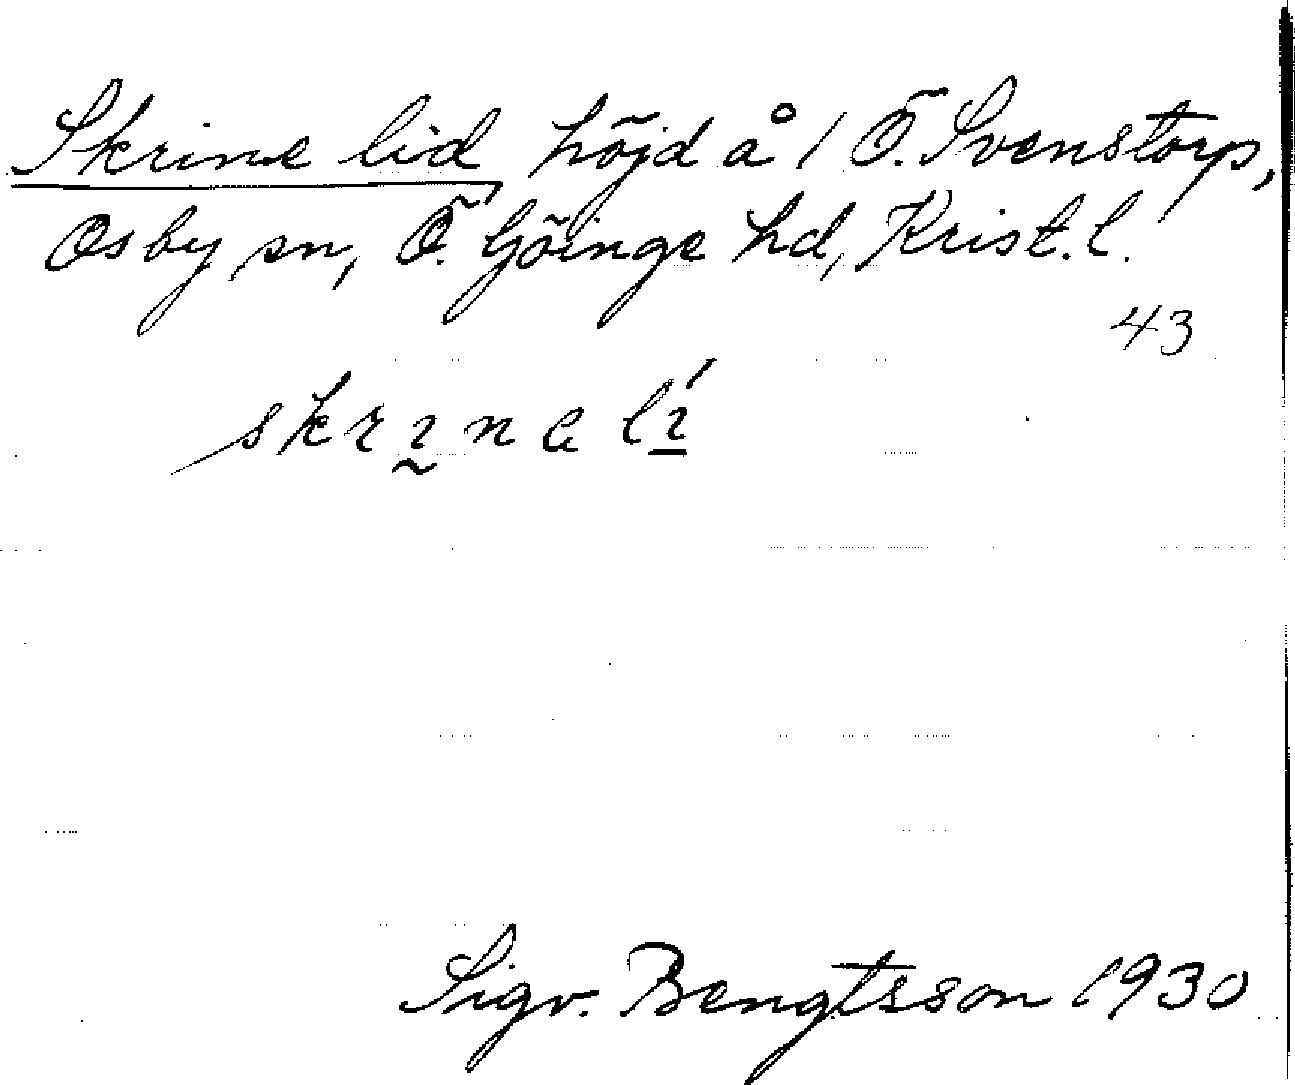 Skrine lid, höjd å 1 Ö. Svenstorp,
Osby sn, Ö. Göinge hd, Krist. l.
43
skrı̰na lı̱́
Sigv. Bengtsson 1930